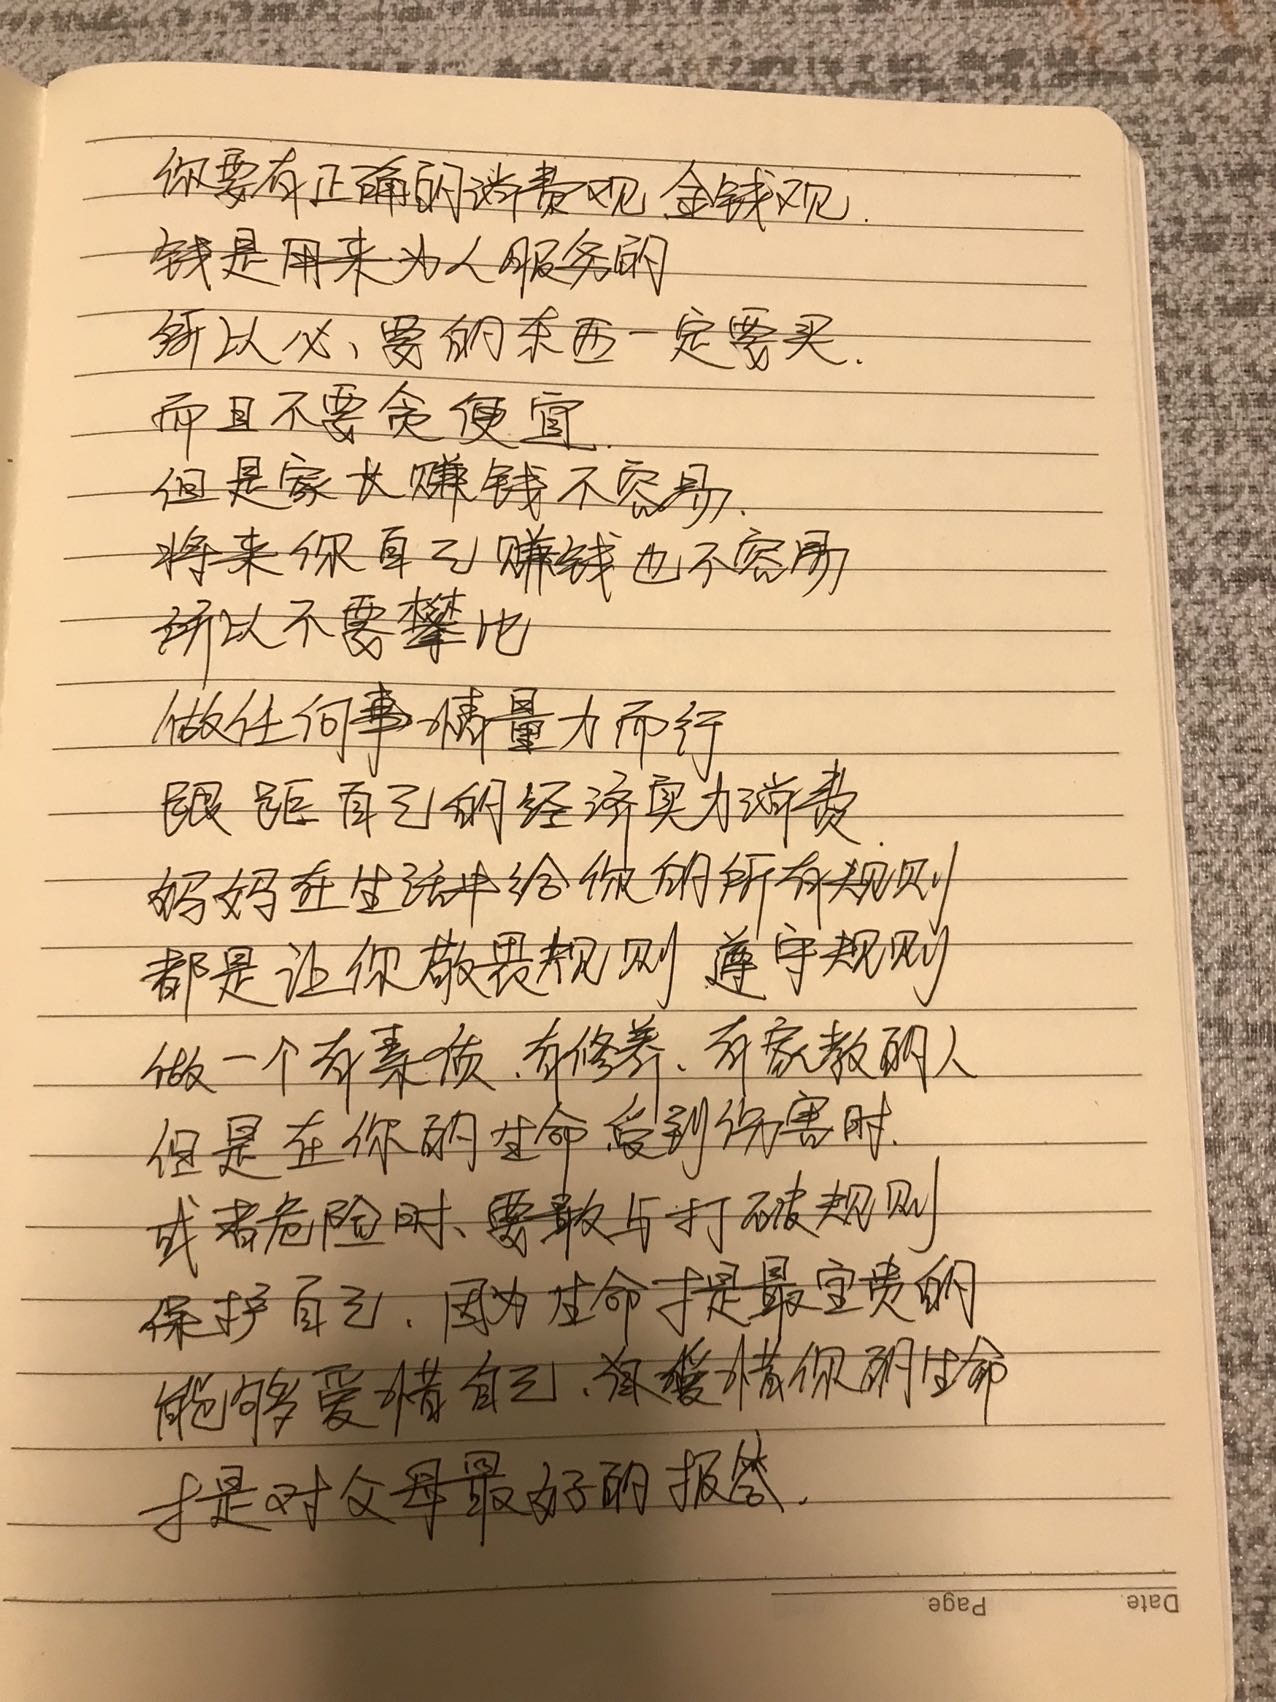 你要有正确的消费观 金钱观.
钱是用来为人服务的
所以必、要的东西一定要买.
而且不要贪便宜.
但是家长赚钱不容易.
将来你自己赚钱也不容易
所以不要攀比
做任何事情量力而行
跟距自己的经济实力消费.
妈妈在生活中给你的所有规则
都是让你敬畏规则 遵守规则
做一个有素质、有修养、有家教的人
但是在你的生命受到伤害时.
或者危险时、要敢与打破规则
保护自己. 因为生命才是最宝贵的
能够爱惜自己、爱惜你的生命
才是对父母最好的报答.
Page
Date